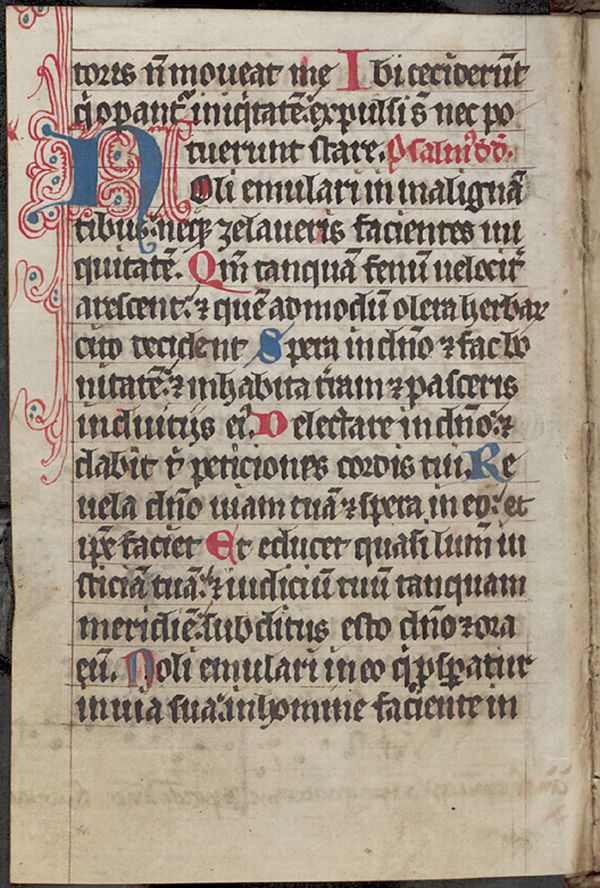 toris nō moueat me Ibi ceciderūt
q̄ opant᷑ iniq̇tatē: expulsi s̄ nec po
tuerunt stare. Psalm᷒ dd̄.
Noli emulari in malignā
tibus: neq; zelaueris facientes ini
quitatē. Qm̄ tanquā fenū uelocit᷑
arescent: ⁊ quē admodū olera herbaꝝ
cito decident Spera in dn̄o ⁊ fac bo
nitatē: ⁊ inhabita t̄ram ⁊ pasceris
in diuitijs ei᷒ Delectare in dn̄o: ⁊
dabit t̄ peticiones cordis tui. Re
uela dn̄o uiam tuā ⁊ spera in eo: et
ip̄e faciet Et educet quasi lum̄ iu
sticiā tuā: ⁊ iudiciū tuū tanquam
meridiē: subditus esto dn̄o ⁊ ora
eū. Noli emulari in eo q̇ ꝓsꝑatur
in uia sua: in homine faciente in